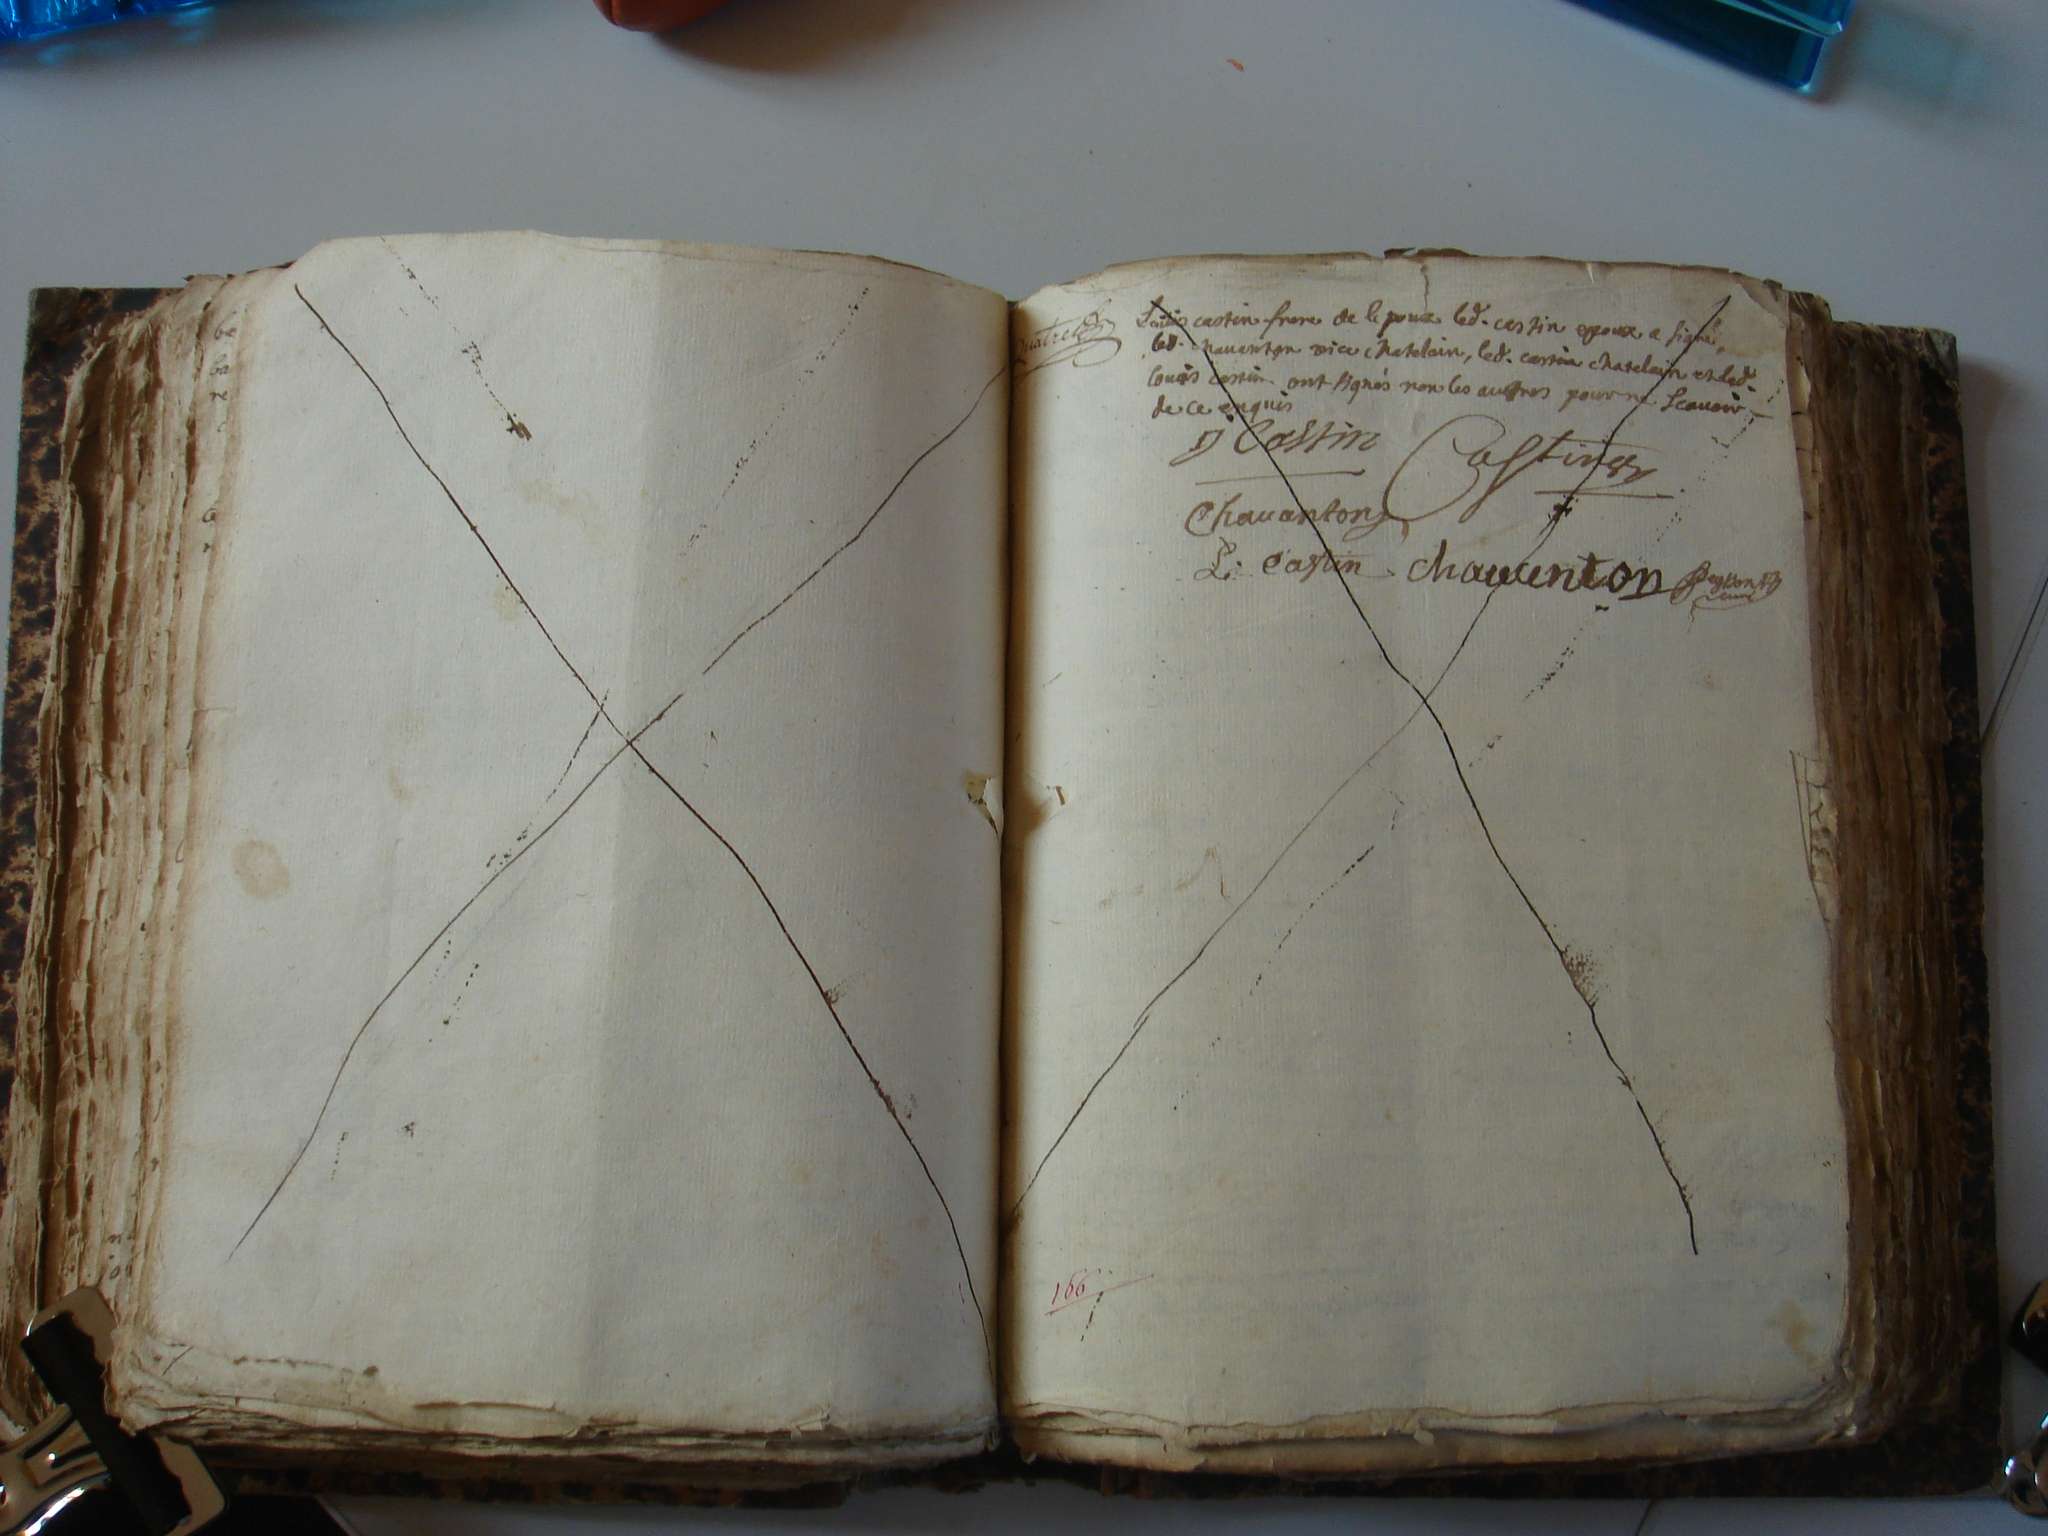 quatre
Louis castin frere de lepoux led. castin epoux a signé
led. chauanton vice chatelain, led. castin chatelain et led.
louis castin ont signés non les auttres pour ne scauoir
de ce enquis
Castin Castin
Chauanton
L. Castin chauenton
166